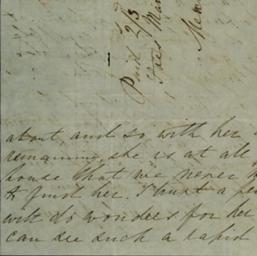 Paid 2/3
about, and so with her
remaining, she is at all
house that we never
to find her. I trust a
will do wonders for her
can see such a rapid